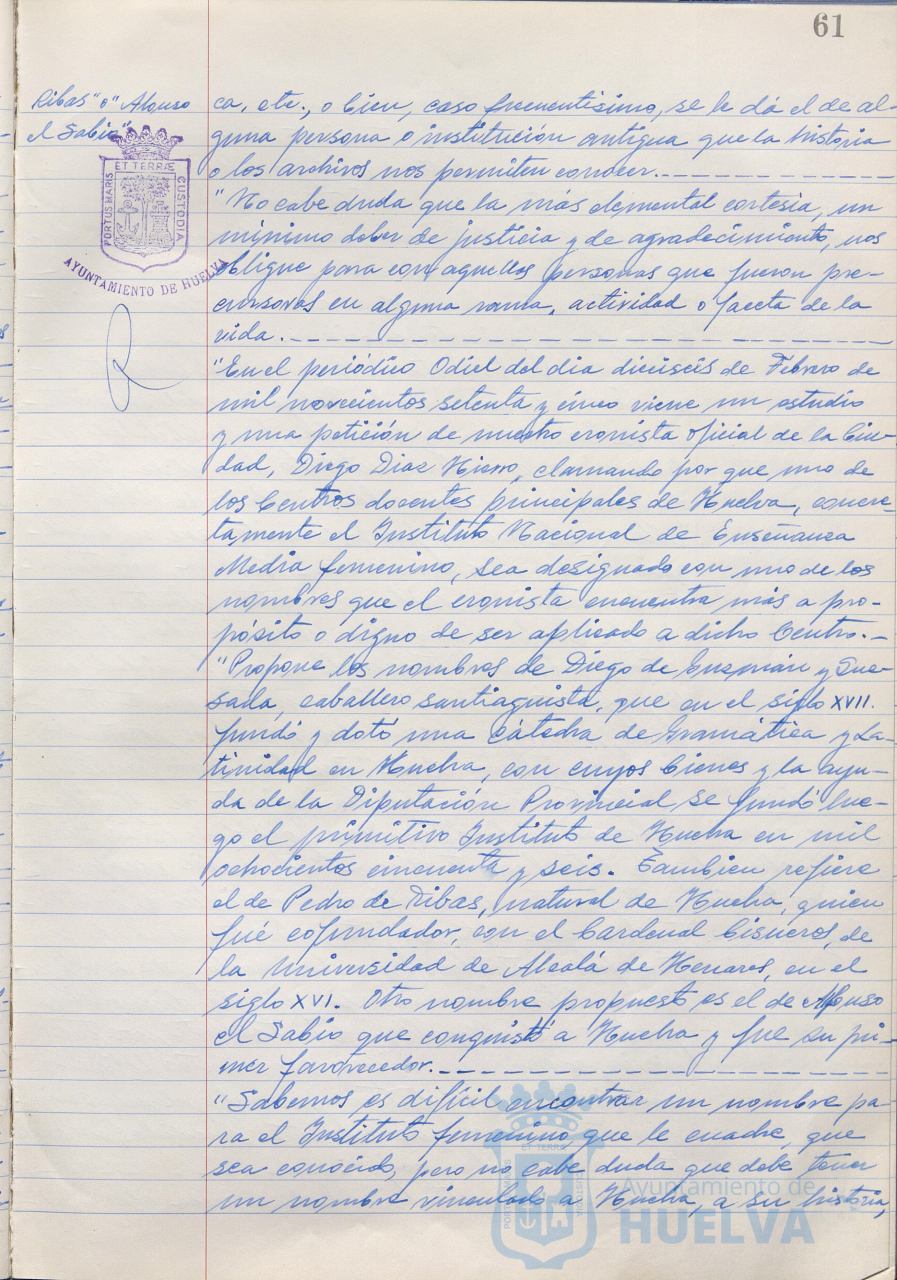 61
Ribas" o "Alonso
el Sabio"
ET TERRÆ
PORTUS MARIS
CUSTODIA
AYUNTAMIENTO DE HUELVA
ca, etc., o bien, caso frecuentisimo, se le dá el de al-
guna persona o institución antigua que la Historia
o los archivos nos permiten conocer.
"No cabe duda que la más elemental cortesía, un
mínimo deber de justicia y de agradecimiento, nos
obligue para con aquellas personas que fueron pre-
cursoras en alguna rama, actividad o faceta de la
vida.
"En el periódico Odiel del día dieciseis de Febrero de
mil novecientos setenta y cinco viene un estudio
y una petición de nuestro cronista oficial de la Ciu-
dad, Diego Diaz Hierro, clamando por que uno de
los Centros docentes principales de Huelva, concre-
tamente el Instituto Nacional de Enseñanza
Media femenino, sea designado con uno de los
nombres que el cronista encuentra más a pro-
pósito o digno de ser aplicado a dicho Centro.-
"Propone los nombres de Diego de Guzmán y Que-
sada, caballero santiaguista, que en el siglo XVII.
fundó y dotó una Cátedra de Gramática y La-
tinidad en Huelva, con cuyos bienes y la ayu-
da de la Diputación Provincial se fundó lue-
go el primitivo Instituto de Huelva en mil
ochocientos cincuenta y seis. Tambien refiere
el de Pedro de Ribas, natural de Huelva, quien
fué cofundador, con el Cardenal Cisneros, de
la Universidad de Alcalá de Henares, en el
siglo XVI. Otro nombre propuesto es el de Alfonso
el Sabio que conquistó a Huelva y fue su pri-
mer favorecedor.
"Sabemos es difícil encontrar un nombre pa-
ra el Instituto femenino que le cuadre, que
sea conocido, pero no cabe duda que debe tener
un nombre vinculado a Huelva, a su historia,
Ayuntamiento de
HUELVA